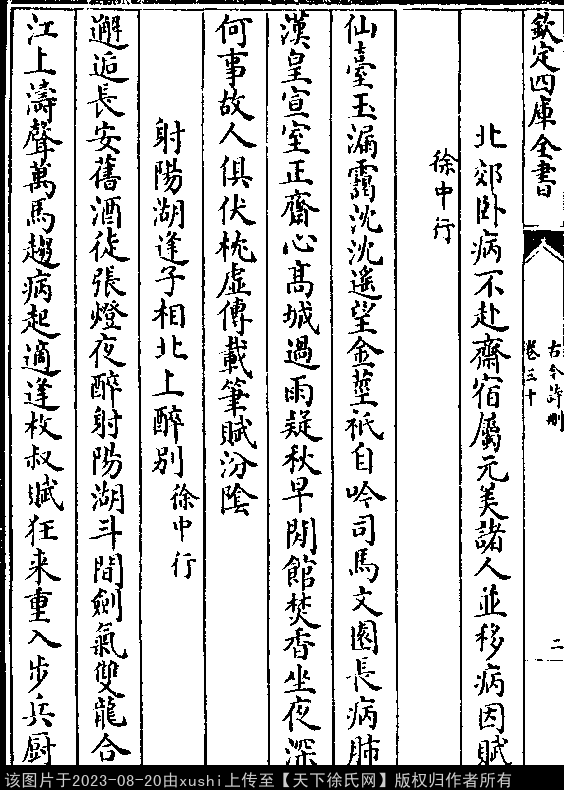 欽定四庫全書
古今詩刪
卷三十
二
北郊卧病不赴齋宿屬元美諸人並移病因賦
徐中行
仙臺玉漏靄沈沈遥望金莖祇自吟司馬文園長病肺
漢皇宣室正齋心髙城過雨疑秋早閒館焚香坐夜深
何事故人俱伏枕虚傳載筆賦汾隂
射陽湖逢子相北上醉别
徐中行
邂逅長安舊酒徒張燈夜醉射陽湖斗間劍氣雙龍合
江上濤聲萬馬趨病起適逢枚叔賦狂来重入步兵厨
该图片于2023-08-20由xushi上传至【天下徐氏网】版权归作者所有